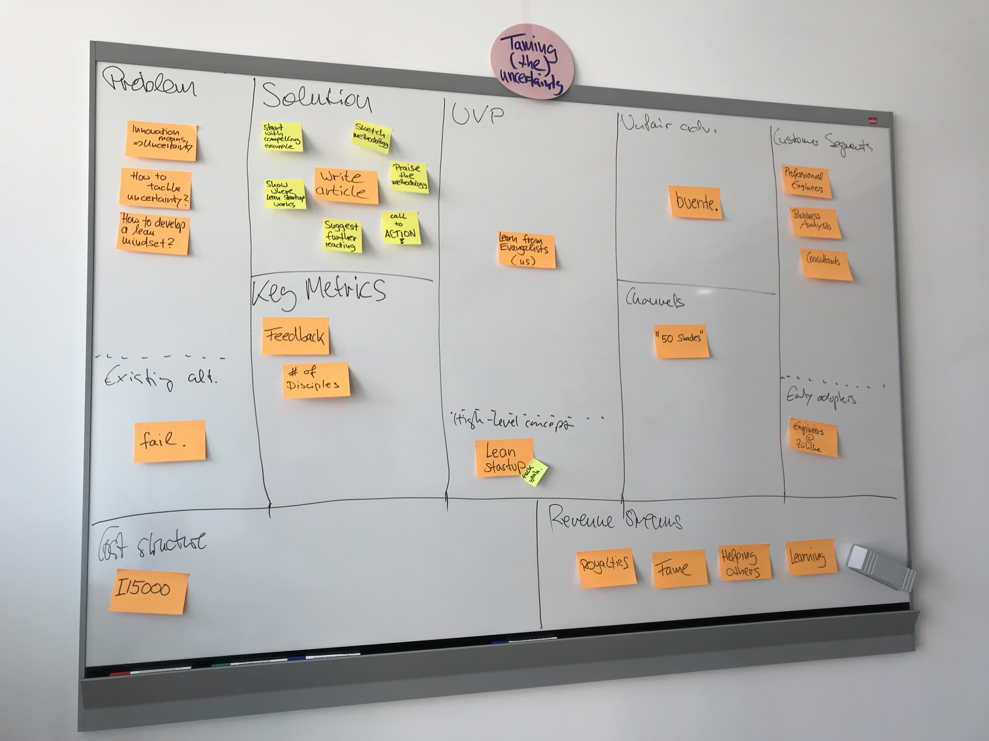 Taming
(the)
uncertainty
Problem
Innovation
means
=> Uncertainty
How to
tackle
uncertainty?
How to develop
a lean
mindset?
Existing alt.
fail.
Solution
Start
with
compelling
example
Sketch
methodology
Show
where
lean startup
works
Write
article
Praise
the
methodology
Suggest
further
reading
call
to
ACTION
Key Metrics
Feedback
# of
Disciples
UVP
Learn from
Evangelists
(us)
High-level concept
Lean
startup
fuck
yeah.
Unfair adv.
buente.
Channels
"50 Shades"
Customer Segments
Professional
Engineers
Business
Analysts
Consultants
Early adopters
Engineers
@
Cost structure
I15000
Revenue Streams
Royalties
Fame
Helping
others
Learning